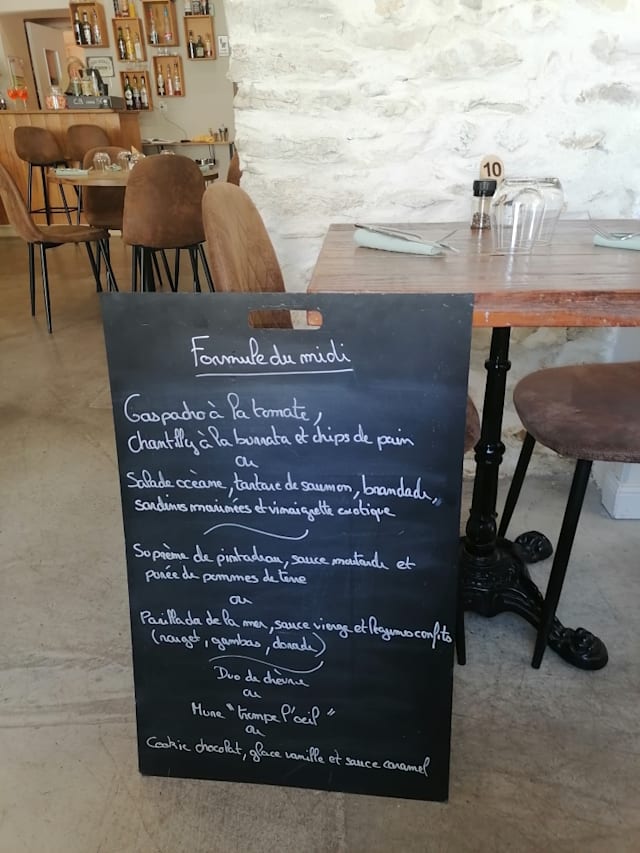 10
Formule du midi
Gaspacho à la tomate,
Chantilly à la burrata et chips de pain
ou
Salade océane, tartare de saumon, brandade,
sardines marinées et vinaigrette exotique
Suprême de pintadeau, sauce moutarde et
purée de pommes de terre
ou
Parillada de la mer, sauce vierge et légumes confits
(rouget, gambas, dorade)
Duo de chèvre
ou
Mure "trompe l'oeil"
ou
Cookie chocolat, glace vanille et sauce caramel